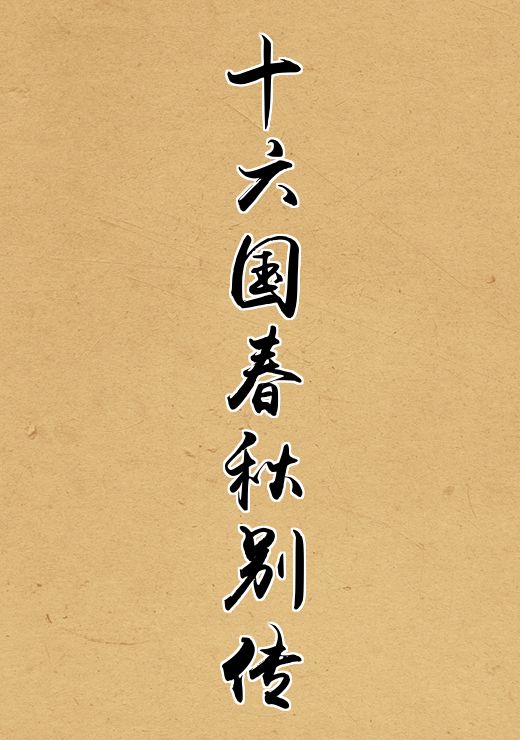 十六国春秋别传